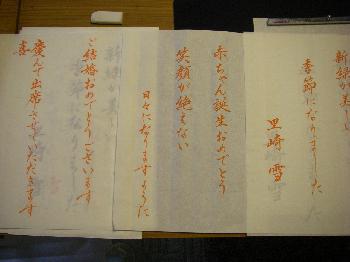 新緑が美しい
季節になりました
里崎 雪
赤ちゃん誕生おめでとう
笑顔が絶えない
日々になりますように
新緑が美しい
季節になりました
ご結婚おめでとうございます
慶んで出席させていただきます
喜